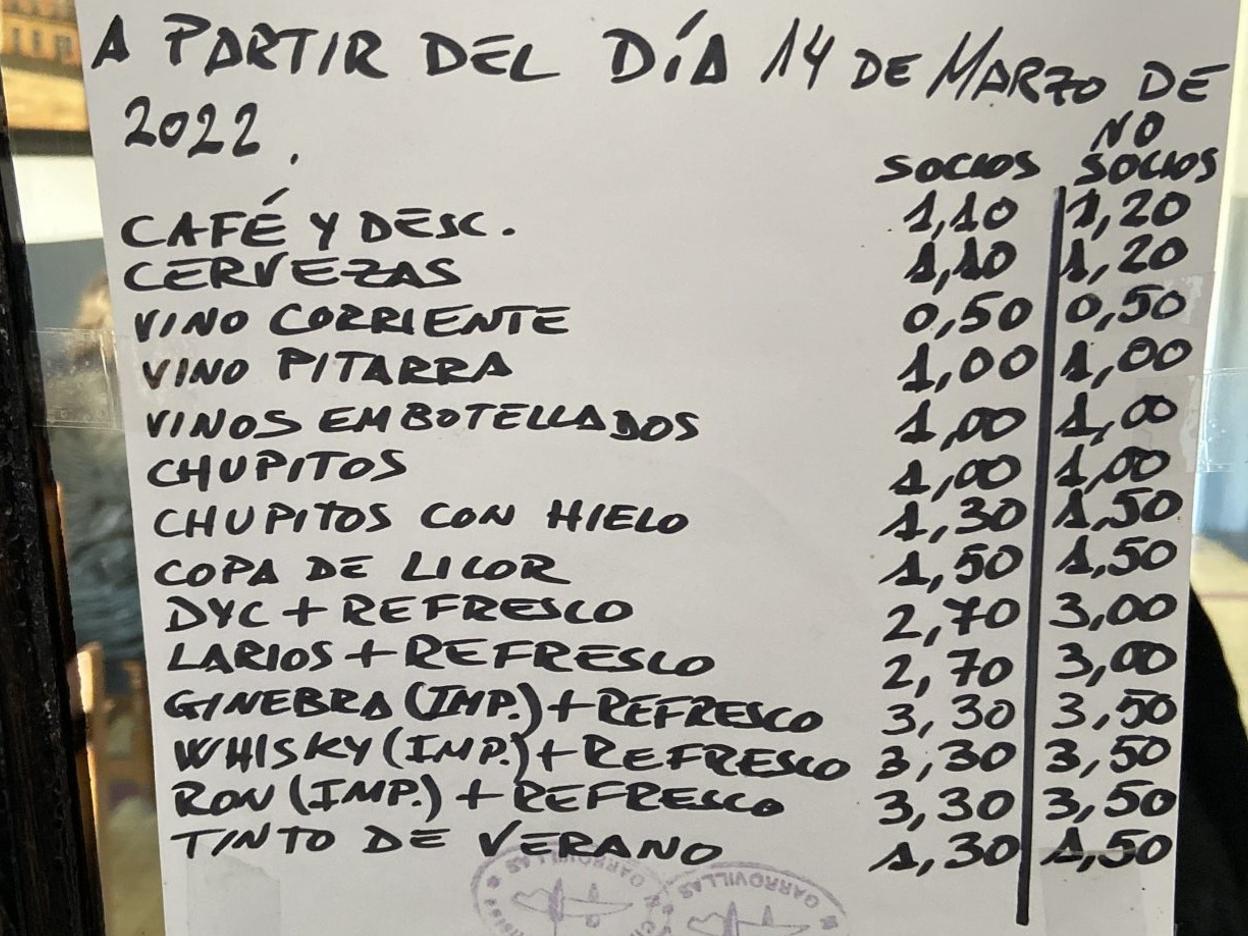 A PARTIR DEL DÍA 14 DE MARZO DE
2022.
SOCIOS NO SOCIOS
CAFÉ Y DESC. 1,10 1,20
CERVEZAS 1,10 1,20
VINO CORRIENTE 0,50 0,50
VINO PITARRA 1,00 1,00
VINOS EMBOTELLADOS 1,00 1,00
CHUPITOS 1,00 1,00
CHUPITOS CON HIELO 1,30 1,50
COPA DE LICOR 1,50 1,50
DYC + REFRESCO 2,70 3,00
LARIOS + REFRESCO 2,70 3,00
GINEBRA (IMP.) + REFRESCO 3,30 3,50
WHISKY (IMP.) + REFRESCO 3,30 3,50
RON (IMP.) + REFRESCO 3,30 3,50
TINTO DE VERANO 1,30 1,50
GARROVILLAS